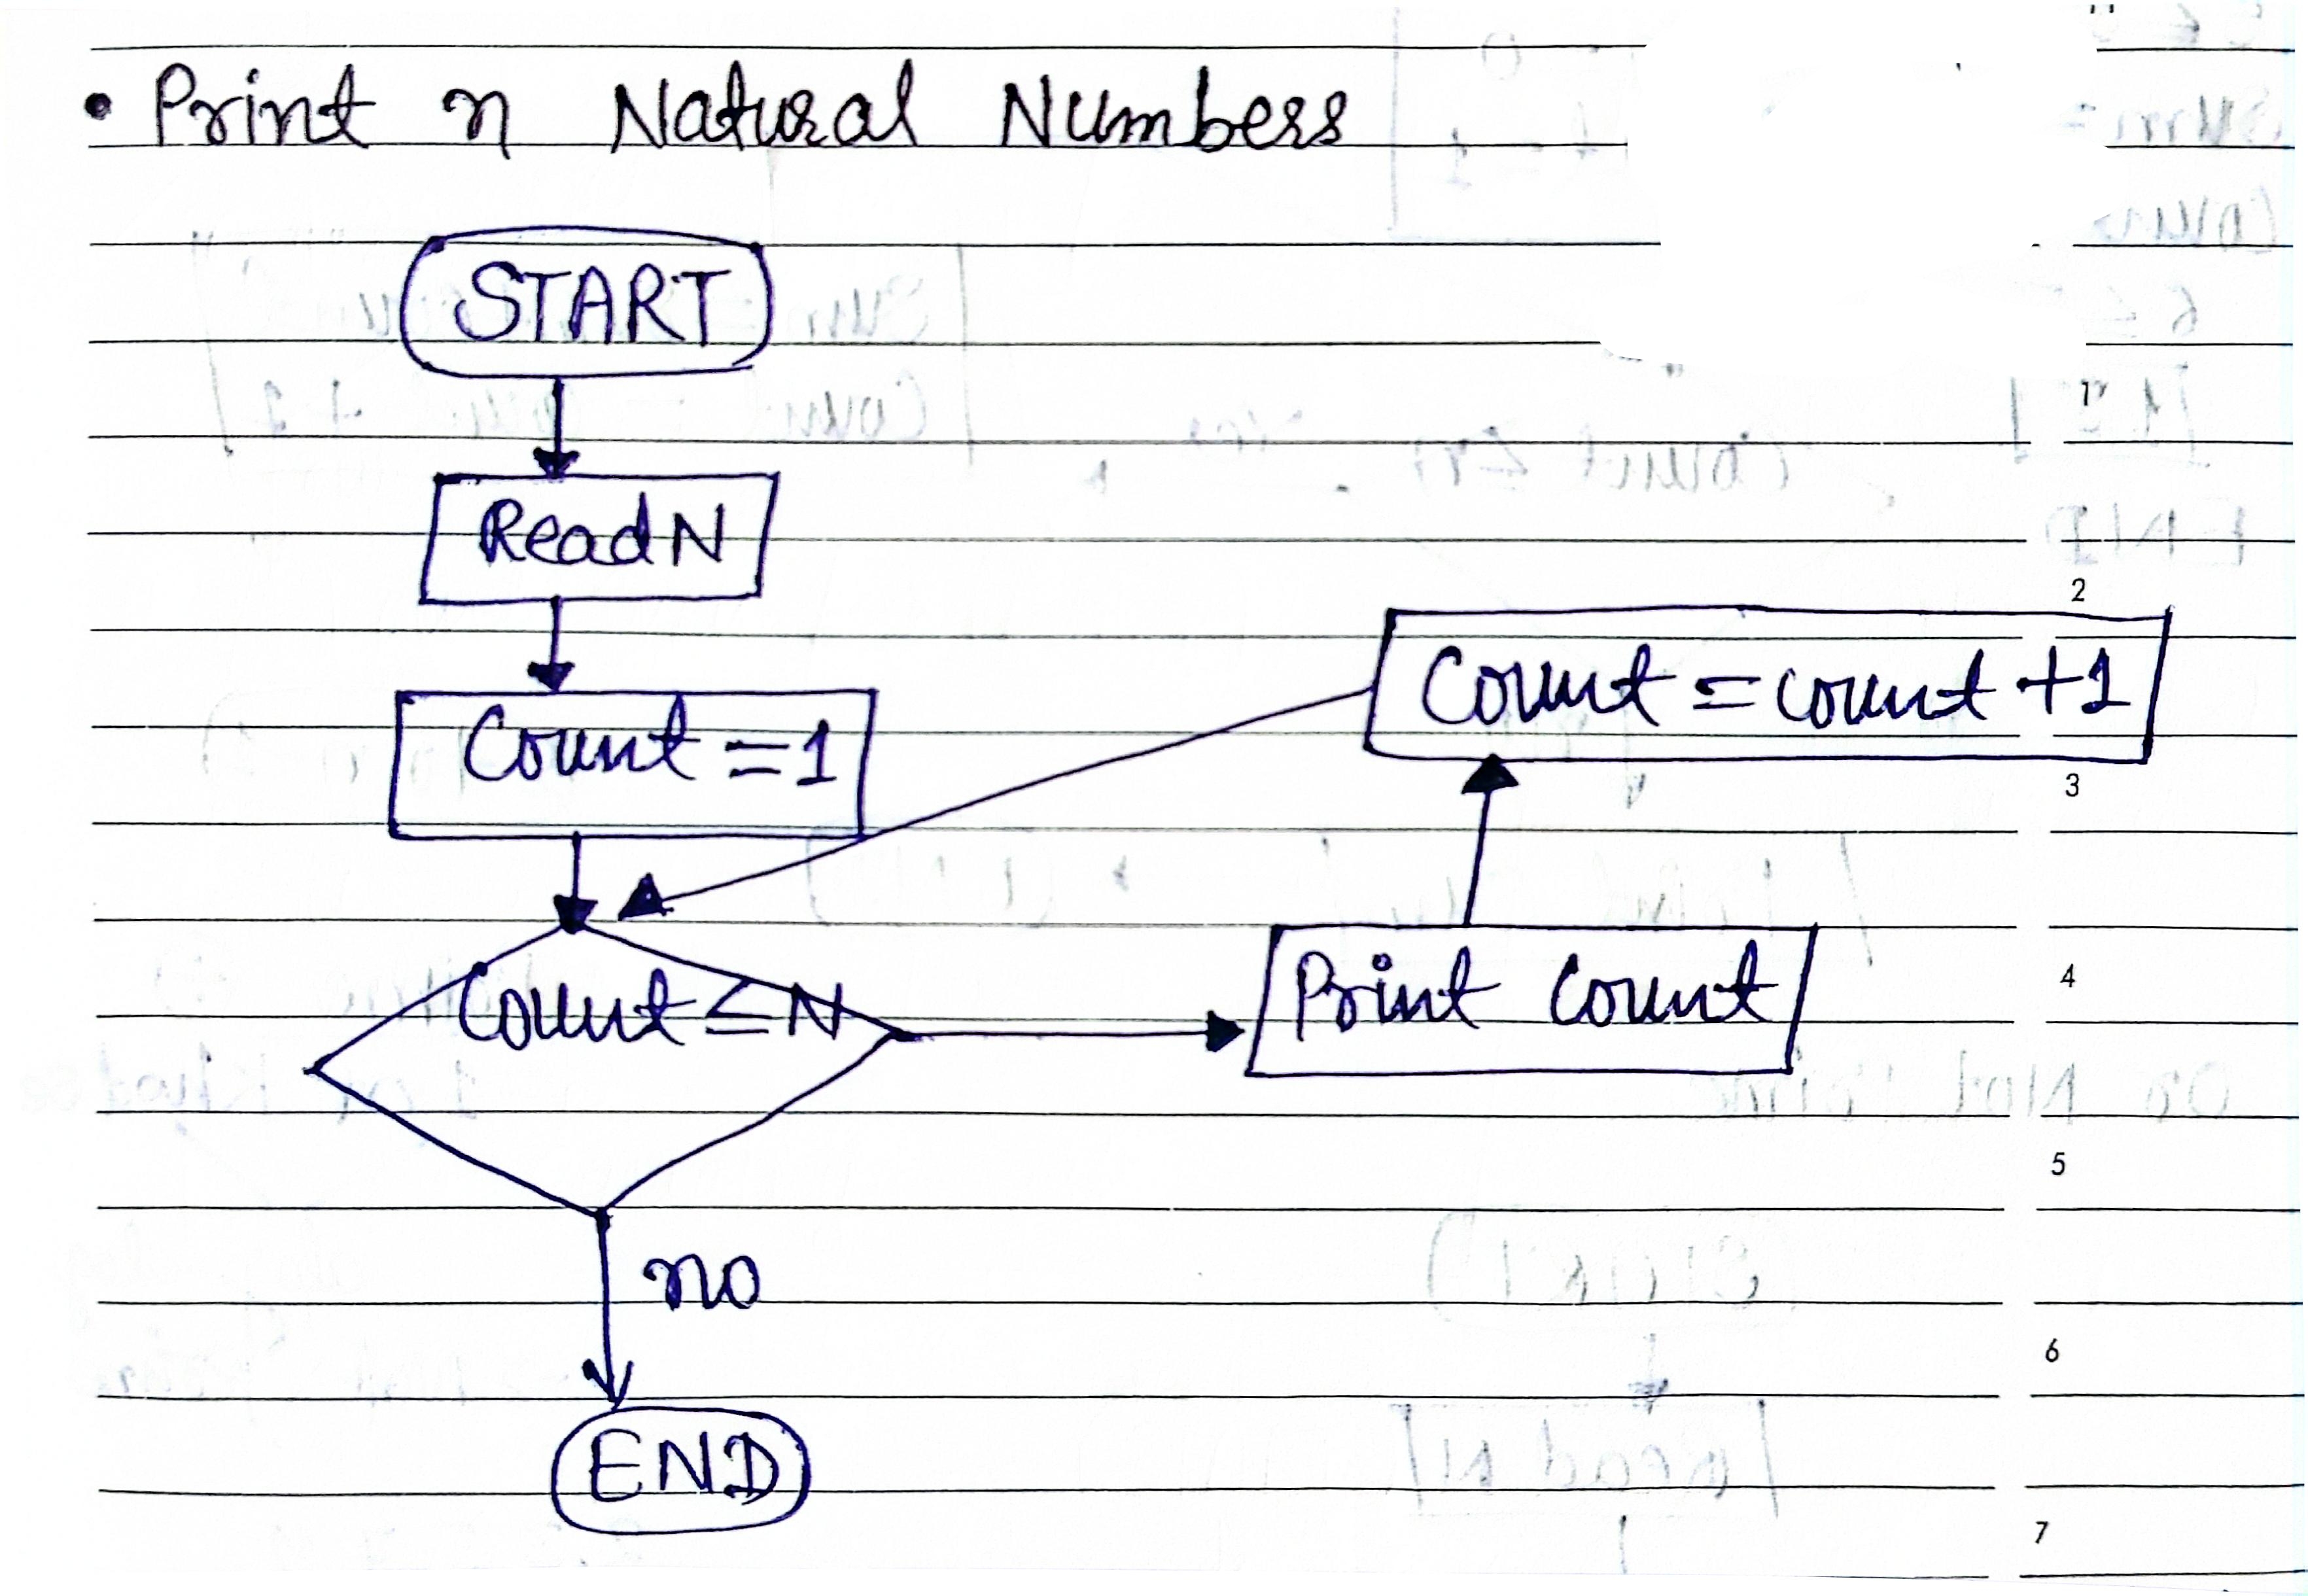 • Print n Natural Numbers
START
Read N
Count = 1
Count = count + 1
Count ≤ N
Print Count
no
END
1
2
3
4
5
6
7